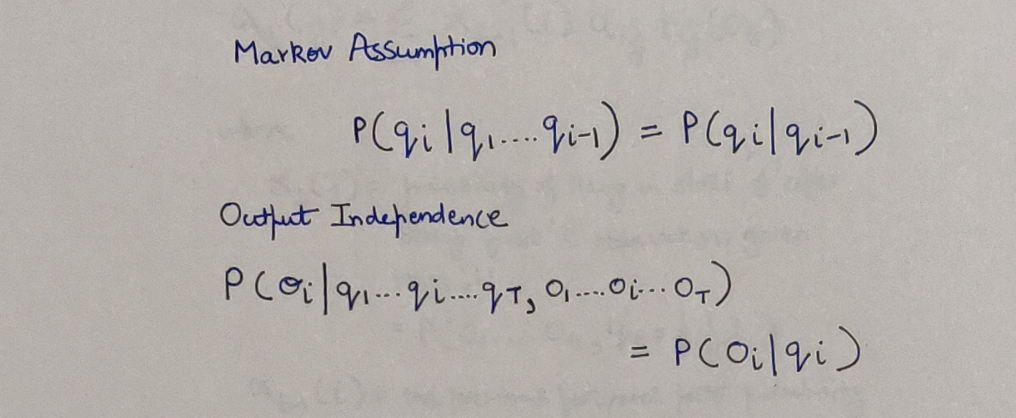 Markov Assumption
P(qi|q1....qi-1) = P(qi|qi-1)
Output Independence
P(oi|q1...qi....qT, o1....oi...oT)
= P(oi|qi)